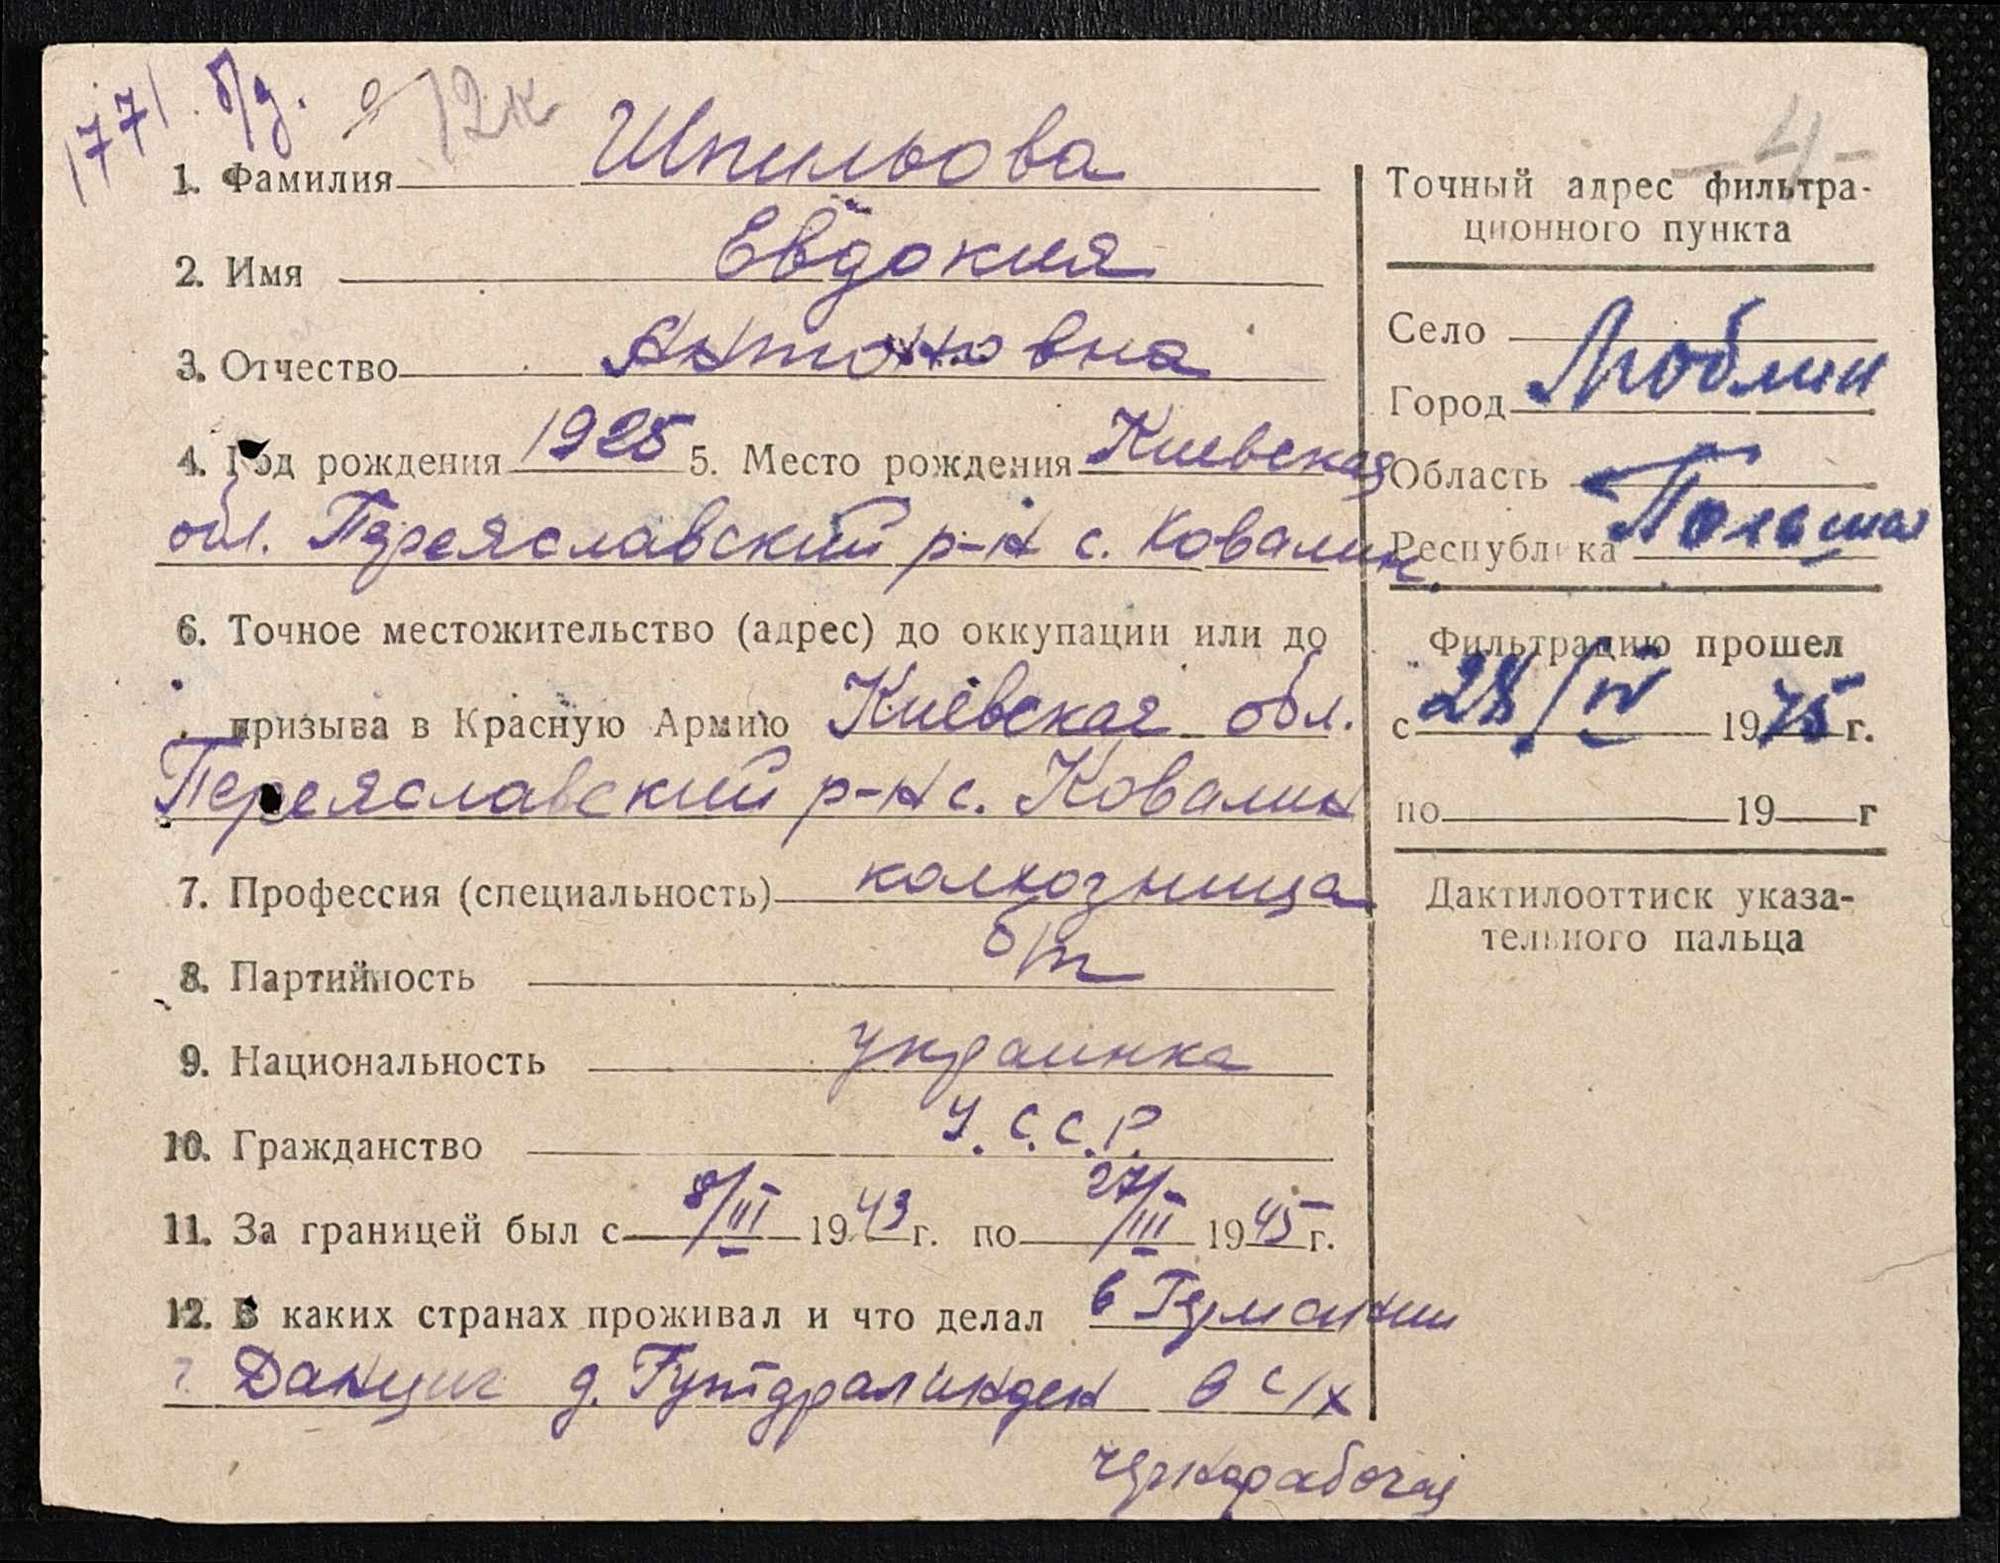 1771 б/д. 12к
-4-
1. Фамилия Шпильова
2. Имя Евдокия
3. Отчество Антоновна
4. Год рождения 1925 5. Место рождения Киевская
обл. Переяславский р-н с. Ковалин.
6. Точное местожительство (адрес) до оккупации или до
призыва в Красную Армию Киевская обл.
Переяславский р-н с. Ковалин
7. Профессия (специальность) колхозница
8. Партийность б/п
9. Национальность украинка
10. Гражданство У.С.С.Р.
11. За границей был с 8/III 1943 г. по 27/III 1945 г.
12. В каких странах проживал и что делал в Германии
г. Данциг д. в с/х
чернорабочая
Точный адрес фильтра-
ционного пункта
Село
Город Люблин
Область
Республика Польша
Фильтрацию прошел
с 28/IV 1945 г.
по 19 г
Дактилооттиск указа-
тельного пальца